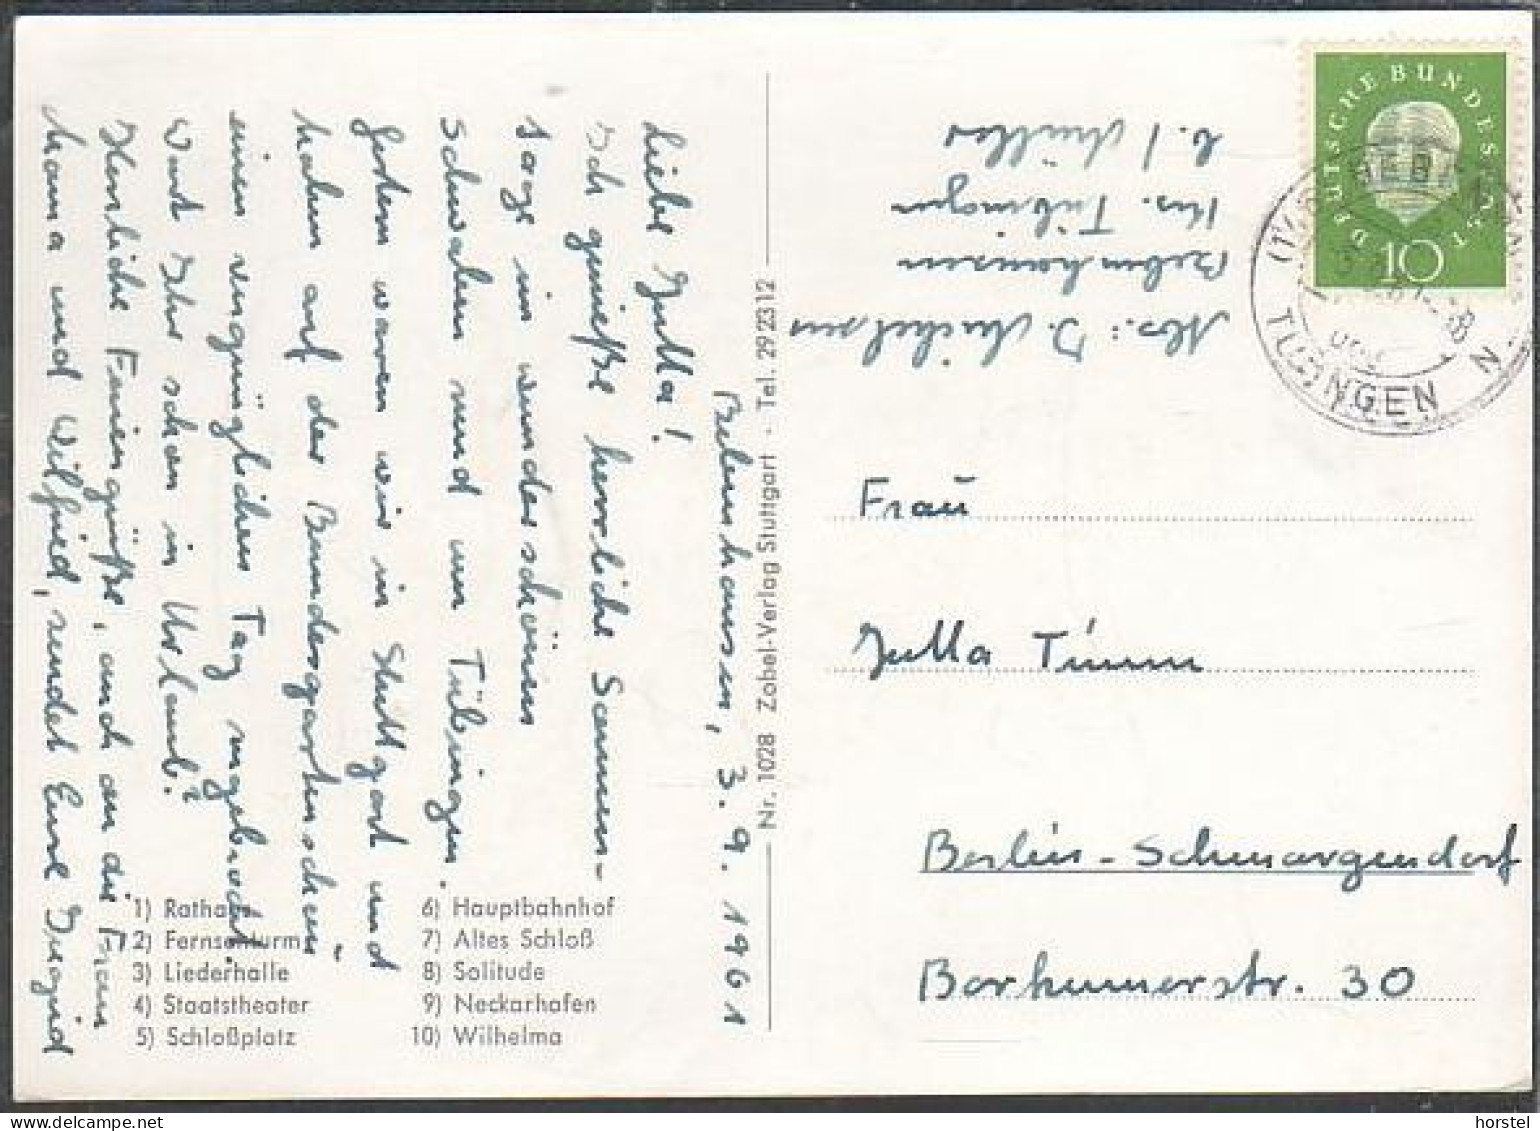 Bebenhausen, 3.9.1961
Liebe Jutta!
Ich genieße herrliche Sonnen-
tage im wunderschönen
Schwaben und um Tübingen.
Gestern waren wir in Stuttgart und
haben auf der Bundesgartenschau
einen vergnüglichen Tag zugebracht.
Wart Ihr schon in Urlaub?
Herzliche Feriengrüße, auch an die Frau
Mama und Wilfried, sendet Eure Ingrid
1) Rathaus
2) Fernsehturm
3) Liederhalle
4) Staatstheater
5) Schloßplatz
6) Hauptbahnhof
7) Altes Schloß
8) Solitude
9) Neckarhafen
10) Wilhelma
Nr. 1028 Zobel-Verlag Stuttgart · Tel. 29 23 12
Abs.: I. Michelsen
Bebenhausen
Krs. Tübingen
b./ Müller
DEUTSCHE BUNDESPOST
10
TÜBINGEN
Frau
Jutta Timm
Berlin-Schmargendorf
Borkumerstr. 30
horstel
© www.delcampe.net